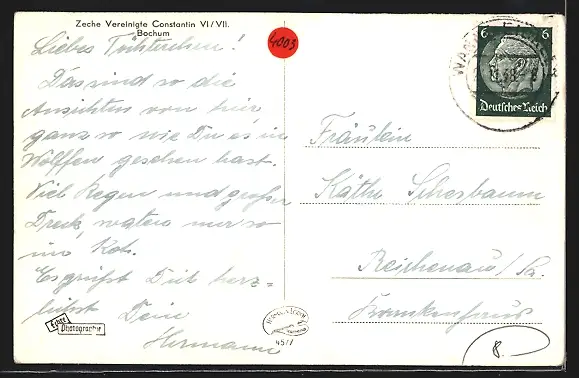 Zeche Vereinigte Constantin VI/VII.
Bochum
4003
Liebes Töchterchen!
Das sind so die
Ansichten von hier
ganz so wie Du es in
Wolffen gesehen hast.
Viel Regen und großer
Dreck, waten nur so
im Kot.
Es grüßt Dich herz=
lichst Dein
Hermann
Echte
Photographie
4577
6 6
Deutsches Reich
Fräulein
Käthe Scherbaum
Reichenau/Sa.
Krankenhaus
8.